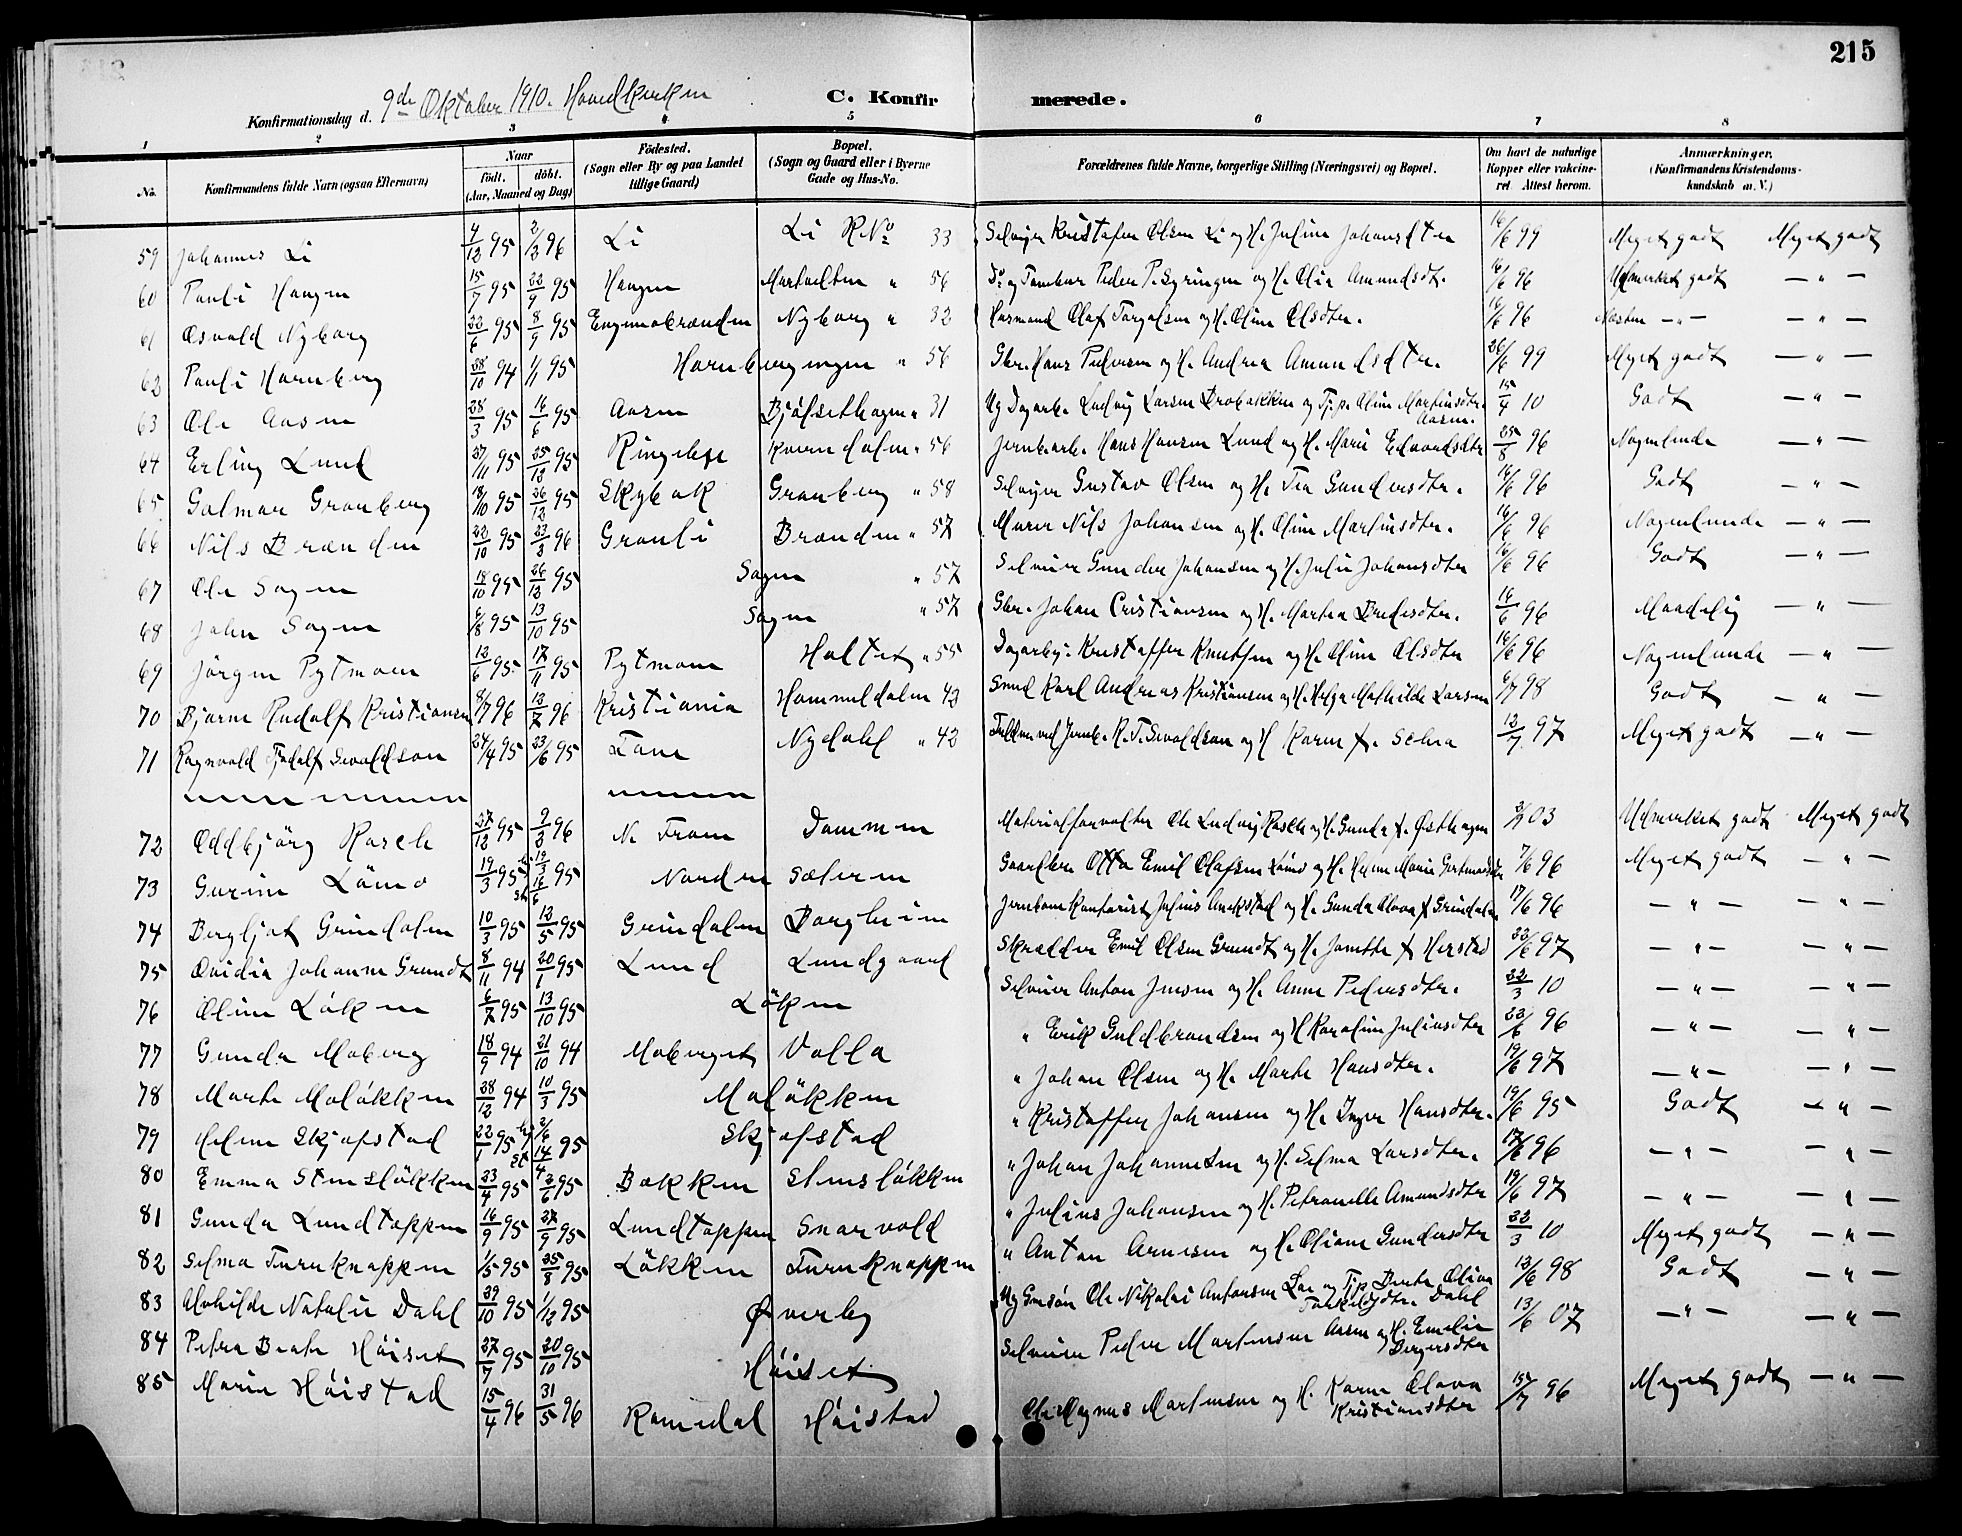 215
Konfirmationsdag d. 9de Oktober 1910. Hovedkirken
C. Konfirmerede.
1 2 3 4 5 6 7 8
No. Konfirmandens fulde Navn (ogsaa Efternavn) Naar født. døbt. (Aar, Maaned og Dag) Fødested. (Sogn eller By og paa Landet tillige Gaard) Bopæl. (Sogn og Gaard eller i Byerne Gade og Hus-No. Forældrenes fulde Navne, borgerlige Stilling (Næringsvei) og Bopæl. Om havt de naturlige Kopper eller vakcineret. Attest herom. Anmærkninger. (Konfirmandens Kristendomskundskab m. V.)
59 Johannes Li 4/12 95 2/2 96 Li Li RNo 33 Selveier Kristofer Olsen Li og H. Juline Johansdter 16/6 99 Meget godt Meget godt
60 Pauli Haugen 15/7 95 22/9 95 Haugen 56 Peder P. og H. Olia Amundsdt. 16/6 96 Udmerket godt — " —
61 Osvald Nyborg 22/6 95 8/9 95 Nyborg " 32 Husmand Olaf og H. Oline Olsdter. 16/6 96 Næsten — " — — " —
62 Pauli Hornberg 28/10 94 1/1 95 " 56 Gbr. Hans Pedersen og H. Andrea Amundsdter. 26/6 99 Meget godt — " —
63 Ole Aasen 28/3 95 16/6 95 Aasen " 31 Ug Dagarb. Ludvig Larsen og Tj.p. Oline Martinsdtr. Aasen. 15/4 10 Godt — " —
64 Erling Lund 27/11 95 25/12 95 Ringebu " 56 Jernb.arb. Hans Hansen Lund og H. Marie Edvardsdter 25/8 96 Nogenlunde — " —
65 Galmar Granberg 18/10 95 26/12 95 Skybak Granberg " 58 Selveier Gustav Olsen og H. Tea Gundersdter. 16/6 96 Godt — " —
66 Nils Brænden 22/10 95 23/3 96 Granli Brænden " 57 Murer Nils Johansen og H. Oline Martinsdter. 16/6 96 Nogenlunde — " —
67 Ole Sagen 18/10 95 26/12 95 Sagen " 57 Selveier Gunder Johansen og H. Julie Johansdter 16/6 96 Godt — " —
68 John Sagen 6/8 95 13/10 95 Sagen " 57 Gbr. Johan Cristiansen og H. Martea 16/6 96 Maadelig — " —
69 Jörgen Pytmoen 12/6 95 17/11 95 Pytmoen Holtet " 55 Kristoffer Knutsen og H. Oline Olsdter 16/6 96 Nogenlunde — " —
70 Bjarne Rudolf Kristiansen 8/7 96 12/7 96 Kristiania Hommeldalen 42 Smed Karl Andreas Kristiansen og H. Helga Mathilde Larsen 6/7 98 Godt — " —
71 Ragnvald Sivaldson 24/4 95 23/6 95 Nydahl " 42 ved Jernb. R. T. Sivaldson og H. Karen f. Selna 12/7 97 Meget godt — " —
72 Oddbjörg Rasch 27/12 95 2/3 96 N. Fron Dammen Materialforvalter Ole Ludvig Rasch og H. Gunda f. Østhagen 2/9 03 Udmerket godt Meget godt
73 Gurine Lömo 19/3 95 19/3 16/6 95 Norden Sæteren Otto Emil Olafsen Lömo og H. Marie 7/6 96 Meget godt — " —
74 Bergljot Grindalen 10/3 95 12/5 95 Grindalen Borgheim Jernbanekontorist Julius og H. Gunda Olava f. Grindalen 17/6 96 — " — — " —
75 Ovidia Johanne Grundt 8/11 94 20/1 95 Lund Lundgaard Skrædder Emil Olsen Grundt og H. Janette f. Herstad 22/6 97 — " — — " —
76 Oline Löken 6/7 95 13/10 95 Löken Selveier Anton Jensen og H. Anne Pedersdter. 22/3 10 — " — — " —
77 Gunda Moberg 18/9 94 21/10 94 Moberget Volla " Erik Guldbrandsen og H. Karoline Juliusdter 23/6 96 — " — — " —
78 Marte Molökken 28/12 94 10/3 95 Molökken " Johan Olsen og H. Marte Hansdter. 19/6 97 — " — — " —
79 Helene Skjefstad 22/1 95 2/6 14/4 95 Skjefstad " Kristoffer Johansen og H. Inger Hansdter. 19/6 95 Godt — " —
80 Emma Stenslökken 23/4 95 2/6 95 Bakken Stenslökken " Johan Johannesen og H. Selma Larsdter. 17/6 96 — " — — " —
81 Gunda Lundtoppen 16/9 95 27/9 95 Lundtoppen Snarvold " Julius Johansen og H. Petronelle Amundsdter 19/6 97 — " — — " —
82 Selma Furuknappen 1/5 95 25/8 95 Lökken Furuknappen " Anton Arnesen og H. Oliane Gundersdter 22/3 10 Meget godt — " —
83 Natalie Dahl 29/10 95 1/12 95 Øverby Ug Ole Nikolai Antonsen og Tjp. Beate Olina Dahl 13/6 98 Godt — " —
84 Petra Beate Höiset 27/7 95 20/10 95 Höiset Selveier Peder Martinsen Aasen og H. Emelie Birgersdter 13/6 07 — " — — " —
85 Marie Höistad 15/4 96 31/5 96 Romedal Höistad Ole Magnus Martinsen og H. Karen Olava Kristiansdter 15/7 96 Meget godt — " —